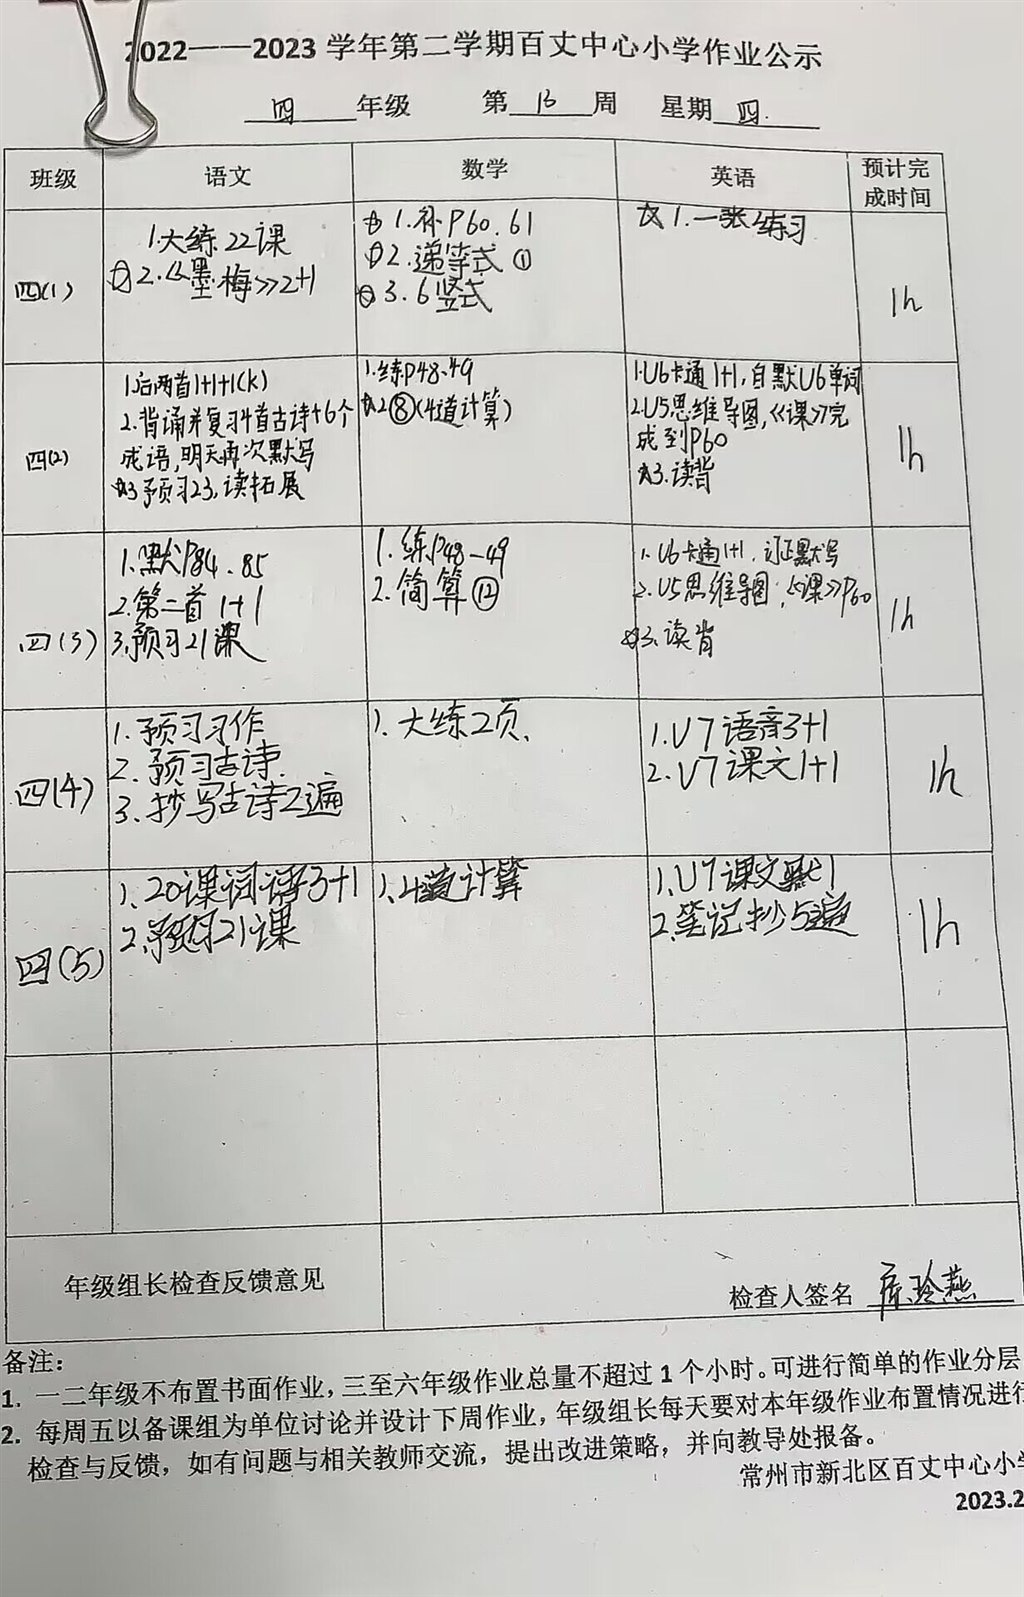 2022——2023 学年第二学期百丈中心小学作业公示
四 年级 第 13 周 星期 四.
班级 语文 数学 英语 预计完
成时间
四(1)
1.大练22课
☆2.《墨梅》2+1
☆1.补P60.61
☆2.递等式①
☆3.6竖式
☆1.一张练习
1h
四(2)
1.后两首1+1+1(k)
2.背诵并复习4首古诗+6个
成语,明天再次默写
☆3预习23,读拓展
1.练P48-49
☆2⑧(4道计算)
1.U6卡通1+1,自默U6单词
2.U5思维导图,《课》完
成到P60
☆3.读背
1h
四(3)
1.默P84、85
2.第二首1+1
3.预习21课
1.练P48-49
2.简算⑫
1.U6卡通1+1.订正默写
2.U5思维导图;《课》P60
☆3.读背
1h
四(4)
1.预习习作
2.预习古诗.
3.抄写古诗2遍
1.大练2页、
1.U7语音3+1
2.U7课文1+1
1h
四(5)
1、20课词语3+1
2.预习21课
1、4道计算
1、U7课文默1
2.笔记抄5遍
1h
年级组长检查反馈意见
检查人签名 玲燕
备注：
1. 一二年级不布置书面作业，三至六年级作业总量不超过 1 个小时。可进行简单的作业分层
2. 每周五以备课组为单位讨论并设计下周作业，年级组长每天要对本年级作业布置情况进行
检查与反馈，如有问题与相关教师交流，提出改进策略，并向教导处报备。
常州市新北区百丈中心小学
2023.2